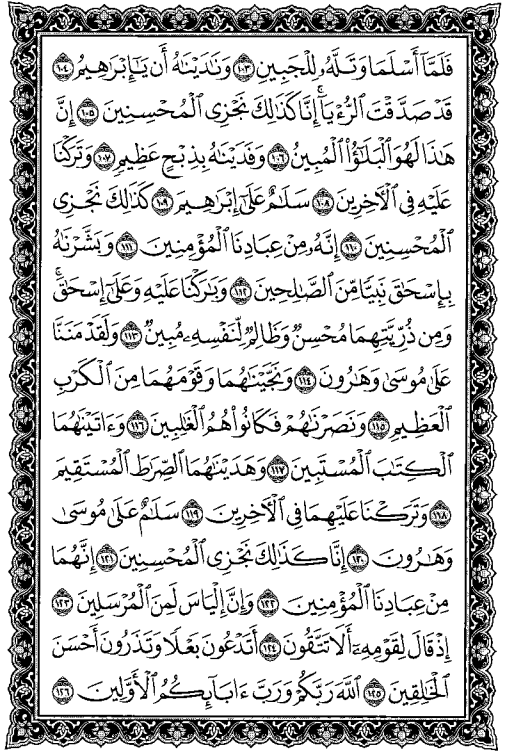 فَلَمَّآ أَسۡلَمَا وَتَلَّهُۥ لِلۡجَبِينِ ١٠٣ وَنَٰدَيۡنَٰهُ أَن يَٰٓإِبۡرَٰهِيمُ ١٠٤
قَدۡ صَدَّقۡتَ ٱلرُّءۡيَآۚ إِنَّا كَذَٰلِكَ نَجۡزِي ٱلۡمُحۡسِنِينَ ١٠٥ إِنَّ
هَٰذَا لَهُوَ ٱلۡبَلَٰٓؤُاْ ٱلۡمُبِينُ ١٠٦ وَفَدَيۡنَٰهُ بِذِبۡحٍ عَظِيمٖ ١٠٧ وَتَرَكۡنَا
عَلَيۡهِ فِي ٱلۡأٓخِرِينَ ١٠٨ سَلَٰمٌ عَلَىٰٓ إِبۡرَٰهِيمَ ١٠٩ كَذَٰلِكَ نَجۡزِي
ٱلۡمُحۡسِنِينَ ١١٠ إِنَّهُۥ مِنۡ عِبَادِنَا ٱلۡمُؤۡمِنِينَ ١١١ وَبَشَّرۡنَٰهُ
بِإِسۡحَٰقَ نَبِيّٗا مِّنَ ٱلصَّٰلِحِينَ ١١٢ وَبَٰرَكۡنَا عَلَيۡهِ وَعَلَىٰٓ إِسۡحَٰقَۚ
وَمِن ذُرِّيَّتِهِمَا مُحۡسِنٞ وَظَالِمٞ لِّنَفۡسِهِۦ مُبِينٞ ١١٣ وَلَقَدۡ مَنَنَّا
عَلَىٰ مُوسَىٰ وَهَٰرُونَ ١١٤ وَنَجَّيۡنَٰهُمَا وَقَوۡمَهُمَا مِنَ ٱلۡكَرۡبِ
ٱلۡعَظِيمِ ١١٥ وَنَصَرۡنَٰهُمۡ فَكَانُواْ هُمُ ٱلۡغَٰلِبِينَ ١١٦ وَءَاتَيۡنَٰهُمَا
ٱلۡكِتَٰبَ ٱلۡمُسۡتَبِينَ ١١٧ وَهَدَيۡنَٰهُمَا ٱلصِّرَٰطَ ٱلۡمُسۡتَقِيمَ
١١٨ وَتَرَكۡنَا عَلَيۡهِمَا فِي ٱلۡأٓخِرِينَ ١١٩ سَلَٰمٌ عَلَىٰ مُوسَىٰ
وَهَٰرُونَ ١٢٠ إِنَّا كَذَٰلِكَ نَجۡزِي ٱلۡمُحۡسِنِينَ ١٢١ إِنَّهُمَا
مِنۡ عِبَادِنَا ٱلۡمُؤۡمِنِينَ ١٢٢ وَإِنَّ إِلۡيَاسَ لَمِنَ ٱلۡمُرۡسَلِينَ ١٢٣
إِذۡ قَالَ لِقَوۡمِهِۦٓ أَلَا تَتَّقُونَ ١٢٤ أَتَدۡعُونَ بَعۡلٗا وَتَذَرُونَ أَحۡسَنَ
ٱلۡخَٰلِقِينَ ١٢٥ ٱللَّهَ رَبَّكُمۡ وَرَبَّ ءَابَآئِكُمُ ٱلۡأَوَّلِينَ ١٢٦